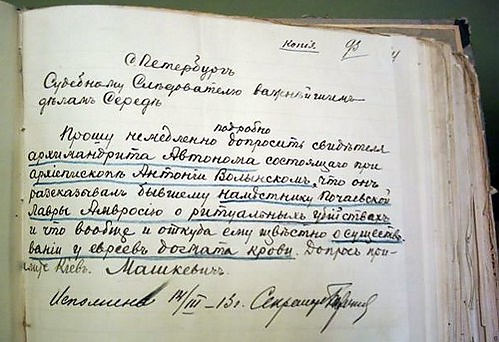 Копія. 93
С Петербургъ
Судебному Слѣдователю важнѣйшимъ
дѣламъ Середѣ
Прошу немедленно подробно допросить свидѣтеля
архимандрита Автонома состоящаго при
архіепископѣ Антоніи Волынскомъ, что онъ
разсказывалъ бывшему намѣстнику Почаевской
Лавры Амвросію о ритуальныхъ убійствахъ
и что вообще и откуда ему извѣстно о существо-
ваніи у евреевъ догмата крови. Допросъ при-
Кіевъ. Машкевичъ.
14/III - 13 г.